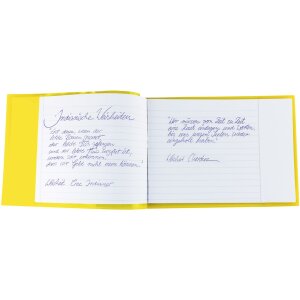 Indianische Weisheiten
Erst dann, wenn der
letzte Baum gerodet,
der letzte
und der letzte Fisch gefangen ist,
werdet ihr erkennen,
dass ihr Geld nicht essen könnt.
Weisheit Cree Indianer
"Wir müssen von Zeit zu Zeit
eine Rast einlegen und warten,
bis uns unsere Seelen wieder
eingeholt haben."
Weisheit Indianer